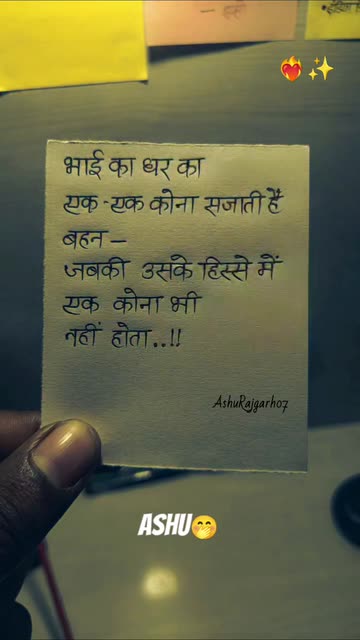 भाई का घर का
एक-एक कोना सजाती हैं
बहन –
जबकी उसके हिस्से में
एक कोना भी
नहीं होता..!!
AshuRajgarh07
ASHU🤭